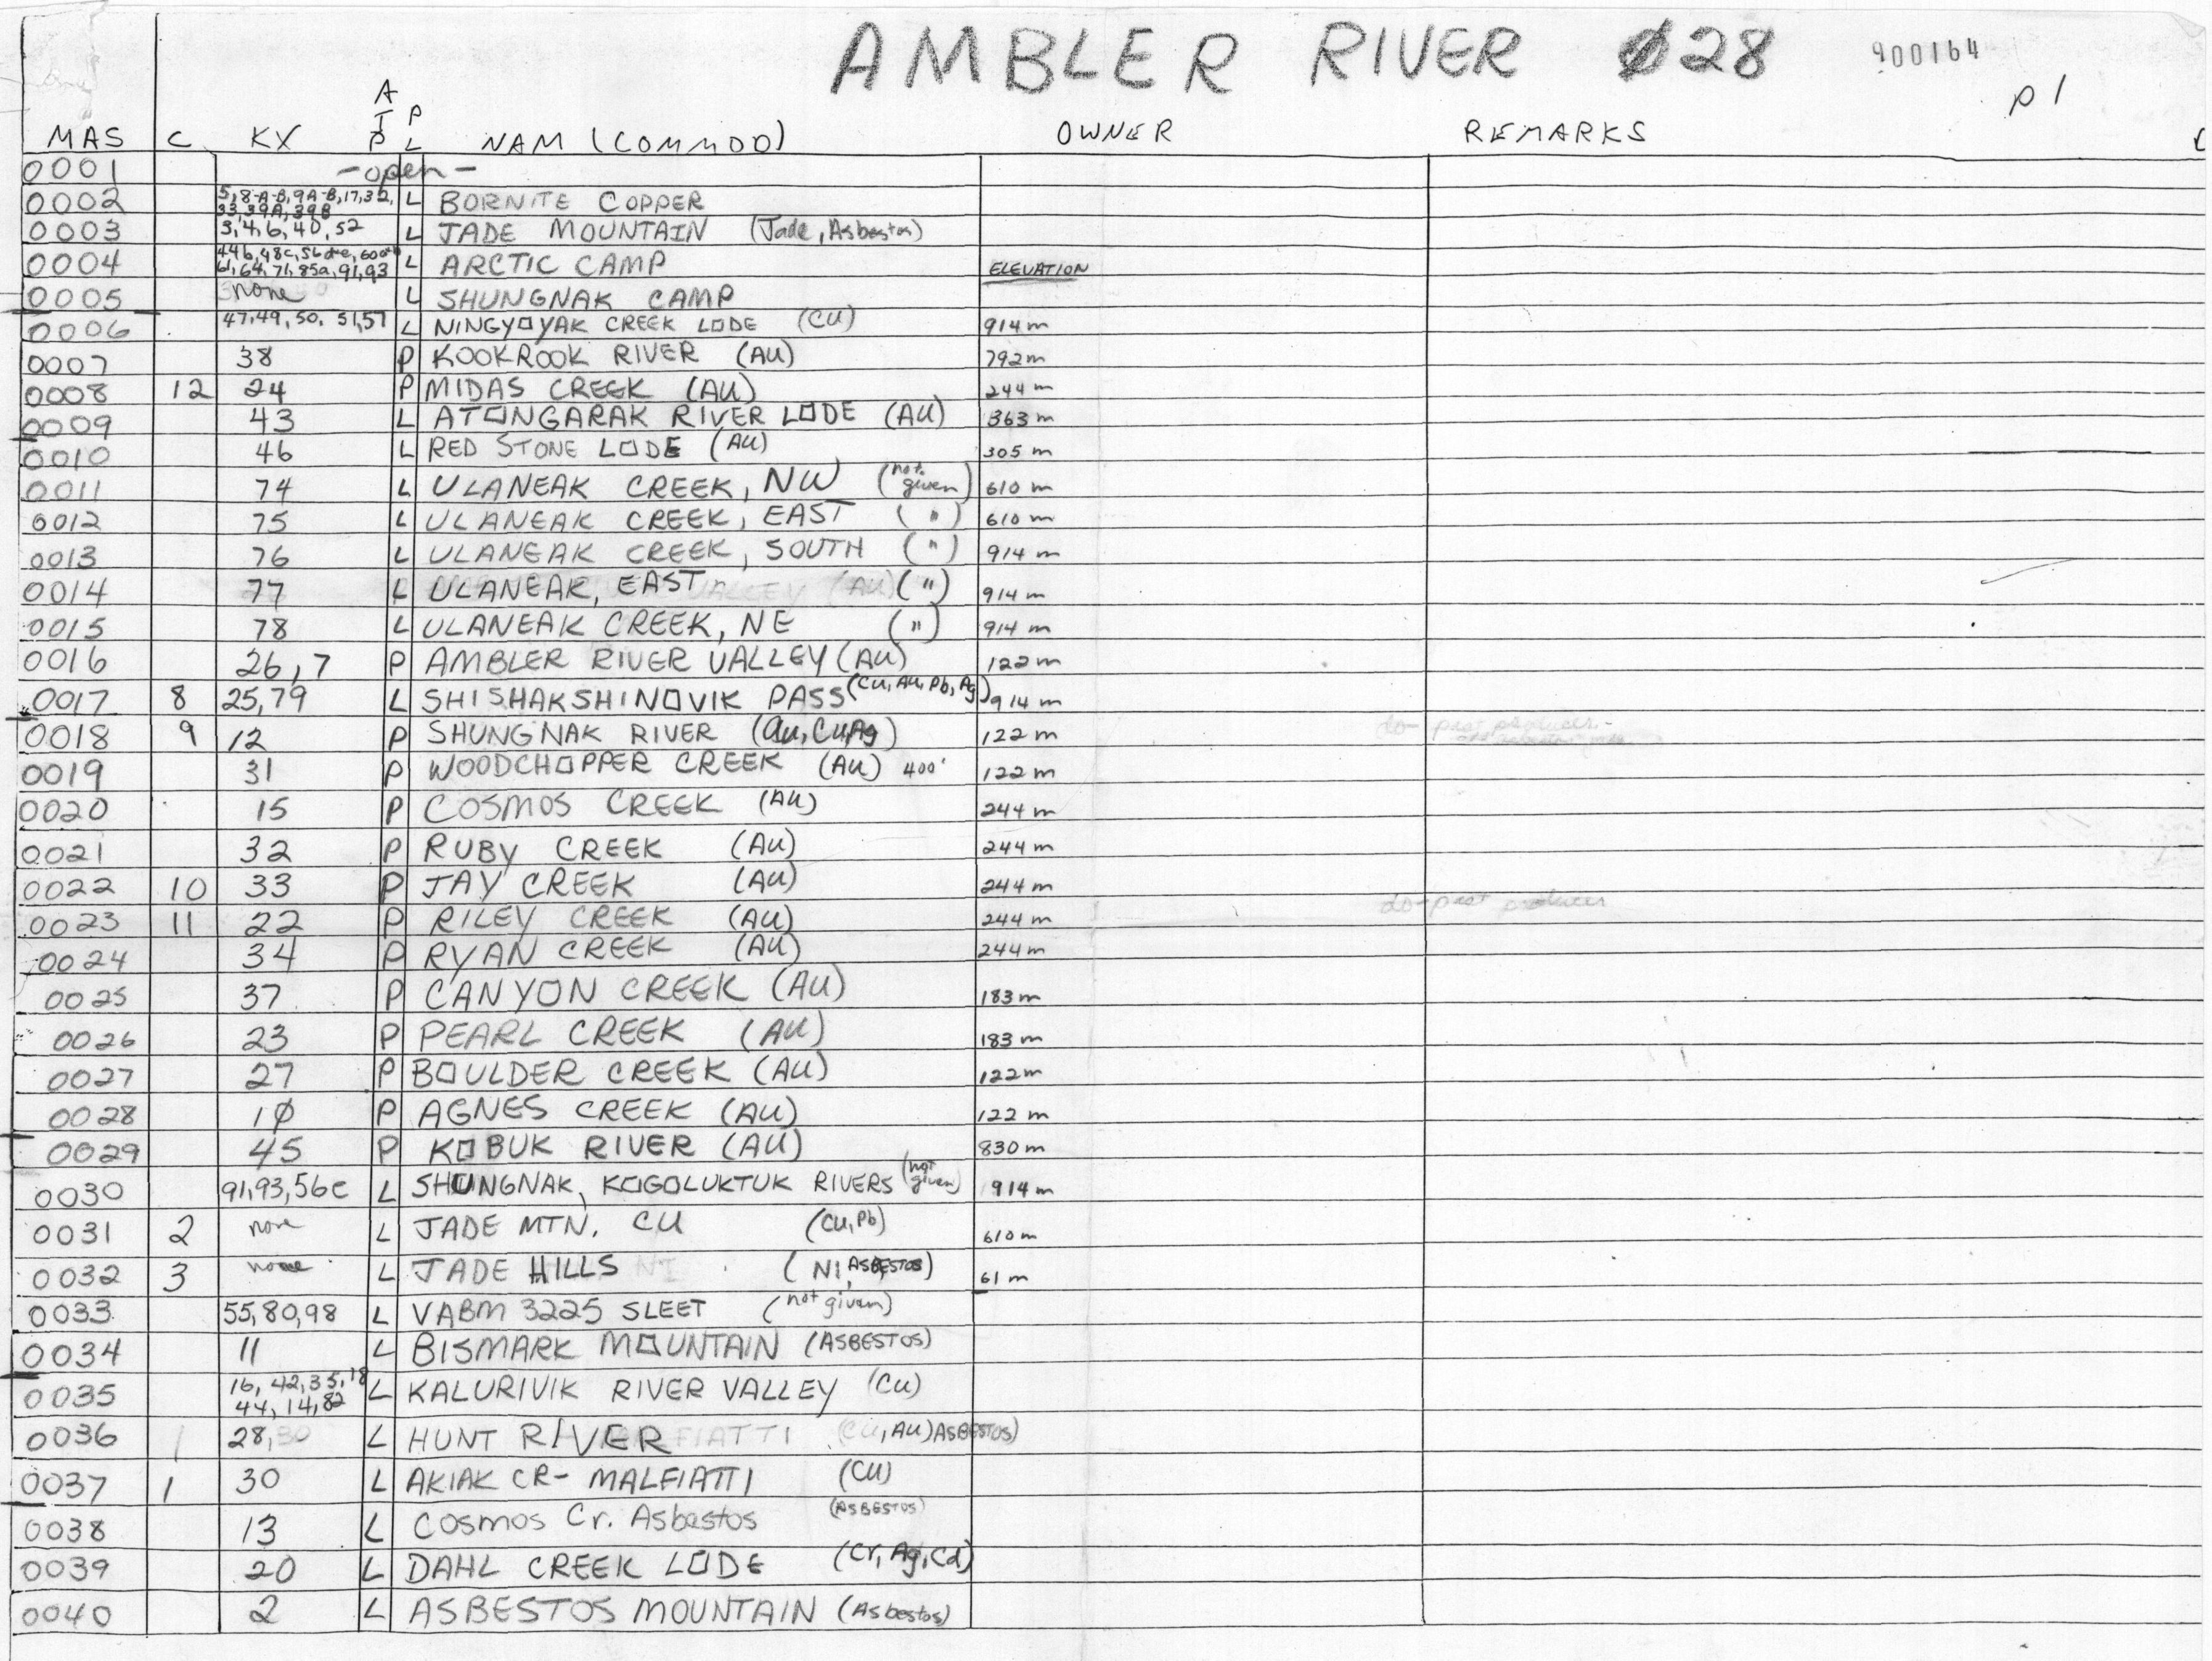 AMBLER RIVER Ø28 900164
p 1
A T P P L
MAS C KX NAM (COMMOD) OWNER REMARKS
0001 -open-
0002 5,8-A-B,9A-B,17,32, 33,39A,39B L BORNITE COPPER
0003 3,4,6,40,52 L JADE MOUNTAIN (Jade, Asbestos)
0004 44b,48c, 61,64,71,85a,91,93 L ARCTIC CAMP ELEVATION
0005 none L SHUNGNAK CAMP
0006 47,49,50, 51,57 L NINGYOYAK CREEK LODE (CU) 914 m
0007 38 P KOOKROOK RIVER (AU) 792 m
0008 12 24 P MIDAS CREEK (AU) 244 m
0009 43 L ATONGARAK RIVER LODE (AU) 363 m
0010 46 L RED STONE LODE (AU) 305 m
0011 74 L ULANEAK CREEK, NW (not given) 610 m
0012 75 L ULANEAK CREEK, EAST ( " ) 610 m
0013 76 L ULANEAK CREEK, SOUTH ( " ) 914 m
0014 77 L ULANEAK, EAST ( " ) 914 m
0015 78 L ULANEAK CREEK, NE ( " ) 914 m
0016 26,7 P AMBLER RIVER VALLEY (AU) 122 m
0017 8 25,79 L SHISHAKSHINOVIK PASS (CU, AU, Pb, Ag) 914 m
0018 9 12 P SHUNGNAK RIVER (Au, Cu, Ag) 122 m do- past producer-
0019 31 P WOODCHOPPER CREEK (AU) 400' 122 m
0020 15 P COSMOS CREEK (AU) 244 m
0021 32 P RUBY CREEK (AU) 244 m
0022 10 33 P JAY CREEK (AU) 244 m
0023 11 22 P RILEY CREEK (AU) 244 m do-past producer
0024 34 P RYAN CREEK (AU) 244 m
0025 37 P CANYON CREEK (AU) 183 m
0026 23 P PEARL CREEK (AU) 183 m
0027 27 P BOULDER CREEK (AU) 122 m
0028 1Ø P AGNES CREEK (AU) 122 m
0029 45 P KOBUK RIVER (AU) 830 m
0030 91,93,56c L SHUNGNAK, KOGOLUKTUK RIVERS (not given) 914 m
0031 2 none L JADE MTN. CU (CU, Pb) 610 m
0032 3 none L JADE HILLS (NI, ASBESTOS) 61 m
0033 55,80,98 L VABM 3225 SLEET (not given)
0034 11 L BISMARK MOUNTAIN (ASBESTOS)
0035 16, 42,35,18 44,14,82 L KALURIVIK RIVER VALLEY (CU)
0036 1 28,30 L HUNT RIVER (CU, AU) ASBESTOS)
0037 1 30 L AKIAK CR- MALFIATTI (CU)
0038 13 L COSMOS Cr. Asbestos (ASBESTOS)
0039 20 L DAHL CREEK LODE (Cr, Ag, Cd)
0040 2 L ASBESTOS MOUNTAIN (Asbestos)